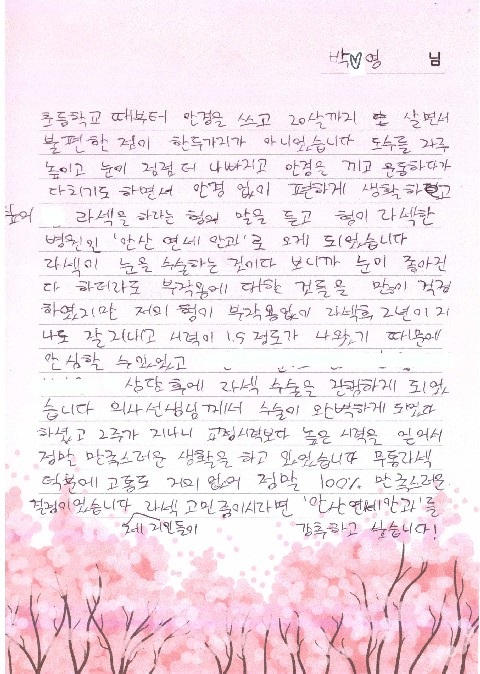 박♡영 님
초등학교 때부터 안경을 쓰고 20살까지 살면서
불편한 점이 한두가지가 아니었습니다 도수를 자주
높이고 눈이 점점 더 나빠지고 안경을 끼고 운동하다가
다치기도 하면서 안경 없이 편하게 생활하고
싶어 라섹을 하라는 형의 말을 듣고 형이 라섹한
병원인 '안산 연세안과'로 오게 되었습니다
라섹이 눈을 수술하는 것이다 보니까 눈이 좋아진
다 하더라도 부작용에 대한 것들을 많이 걱정
하였지만 저의 형이 부작용없이 라섹후 2년이 지
나도 잘 지내고 시력이 1.5 정도가 나왔기 때문에
안심할 수 있었고
상담 후에 라섹 수술을 진행하게 되었
습니다 의사선생님께서 수술이 완벽하게 되었다
하셨고 2주가 지나니 교정시력보다 높은 시력을 얻어서
정말 만족스러운 생활을 하고 있었습니다 무통라섹
덕분에 고통도 거의 없어 정말 100% 만족스러운
걱정이었습니다 라섹 고민중이시라면 '안산연세안과'를
지인들이 강추하고 싶습니다!